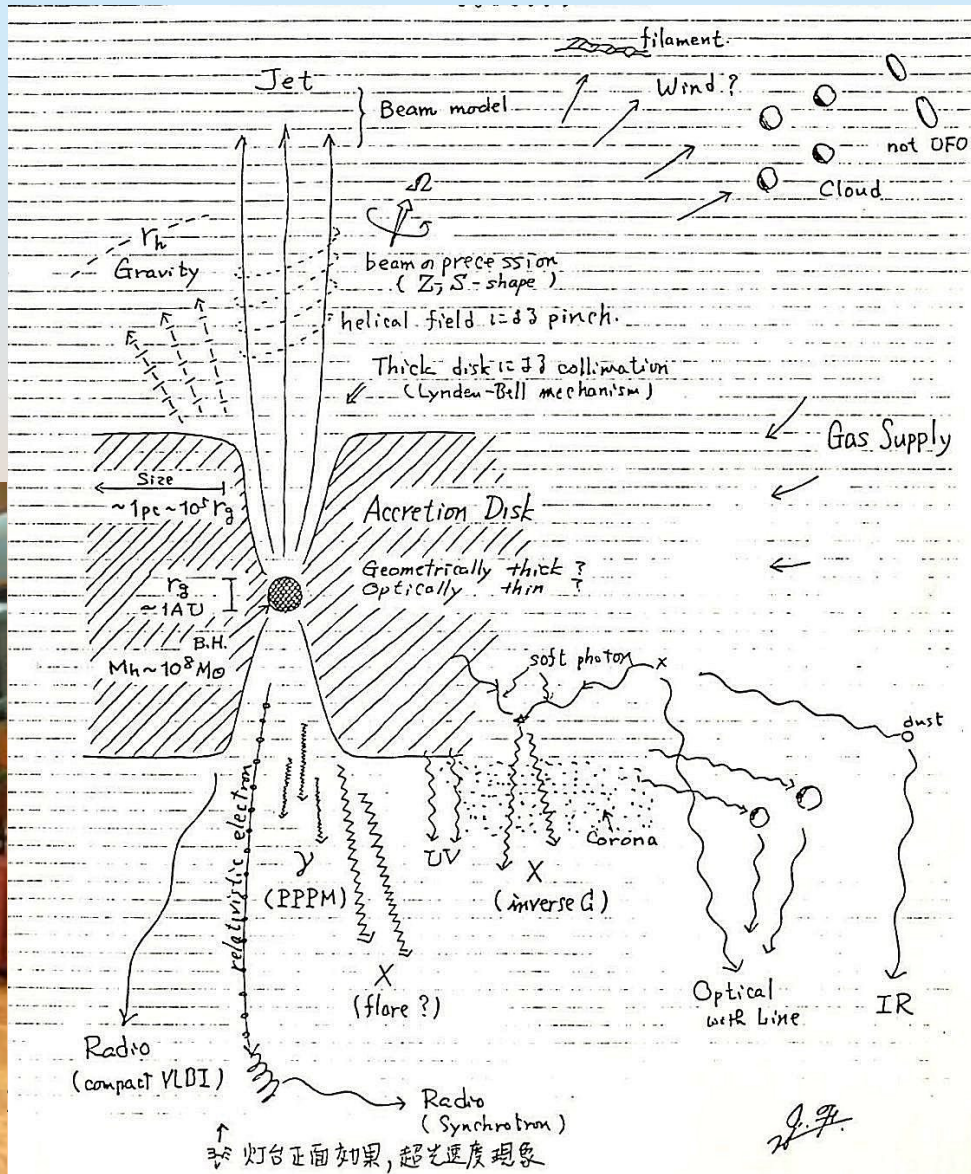 filament.
Jet
Wind ?
Beam model
not UFO
Cloud
Ω
rh
Gravity
beam の precession
( Z, S - shape )
helical field による pinch.
Thick disk による collimation
(Lynden-Bell mechanism)
Gas Supply
Size
~1pc ~ 10⁵ rg
Accretion Disk
Geometrically thick ?
Optically thin ?
rg
~ 1AU
B.H.
Mh ~ 10⁸ M⊙
soft photon
x
dust
relativistic electron
γ
(PPPM)
UV
Corona
X
(inverse C)
X
(flare ?)
Optical
with Line
IR
Radio
(compact VLBI)
Radio
(Synchrotron)
灯台正面効果, 超光速度現象